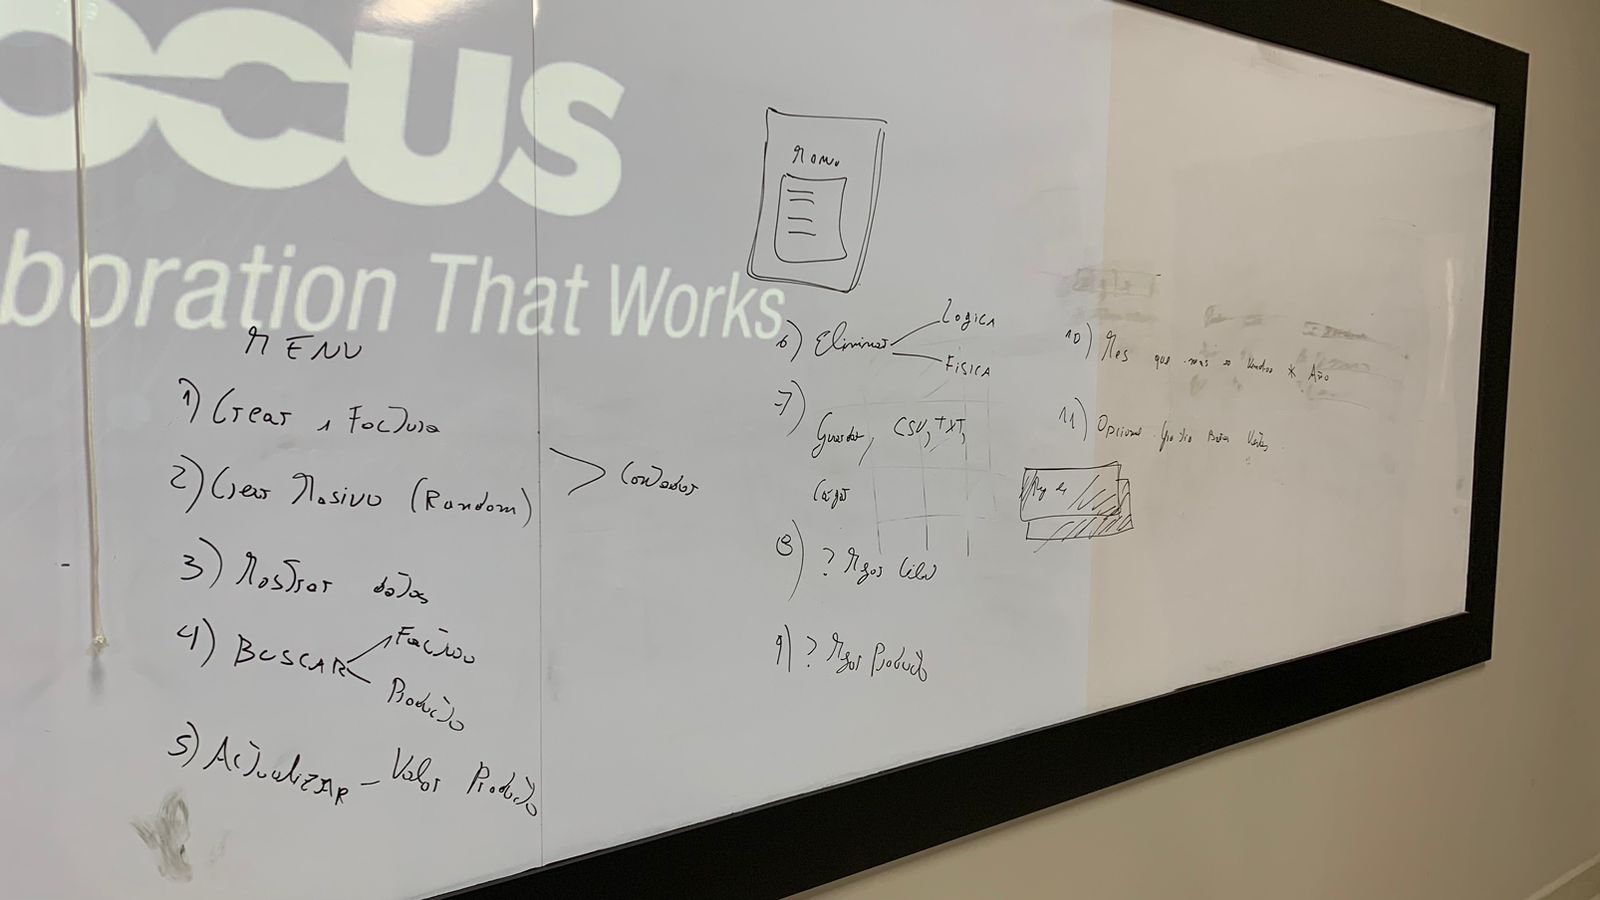 OCUS
boration That Works
Menu
MENU
1) Crear 1 Factura
2) Crear Masivo (Random)
Contador
3) Mostrar datos
4) BUSCAR
Factura
Producto
5) Actualizar - Valor Producto
6) Eliminar
Logica
FISICA
7)
Guardar, CSV, TXT,
Cargar
8) ? Mejor
9) ? Mejor Producto
10) Mes que mas se * Año
11) Opcional